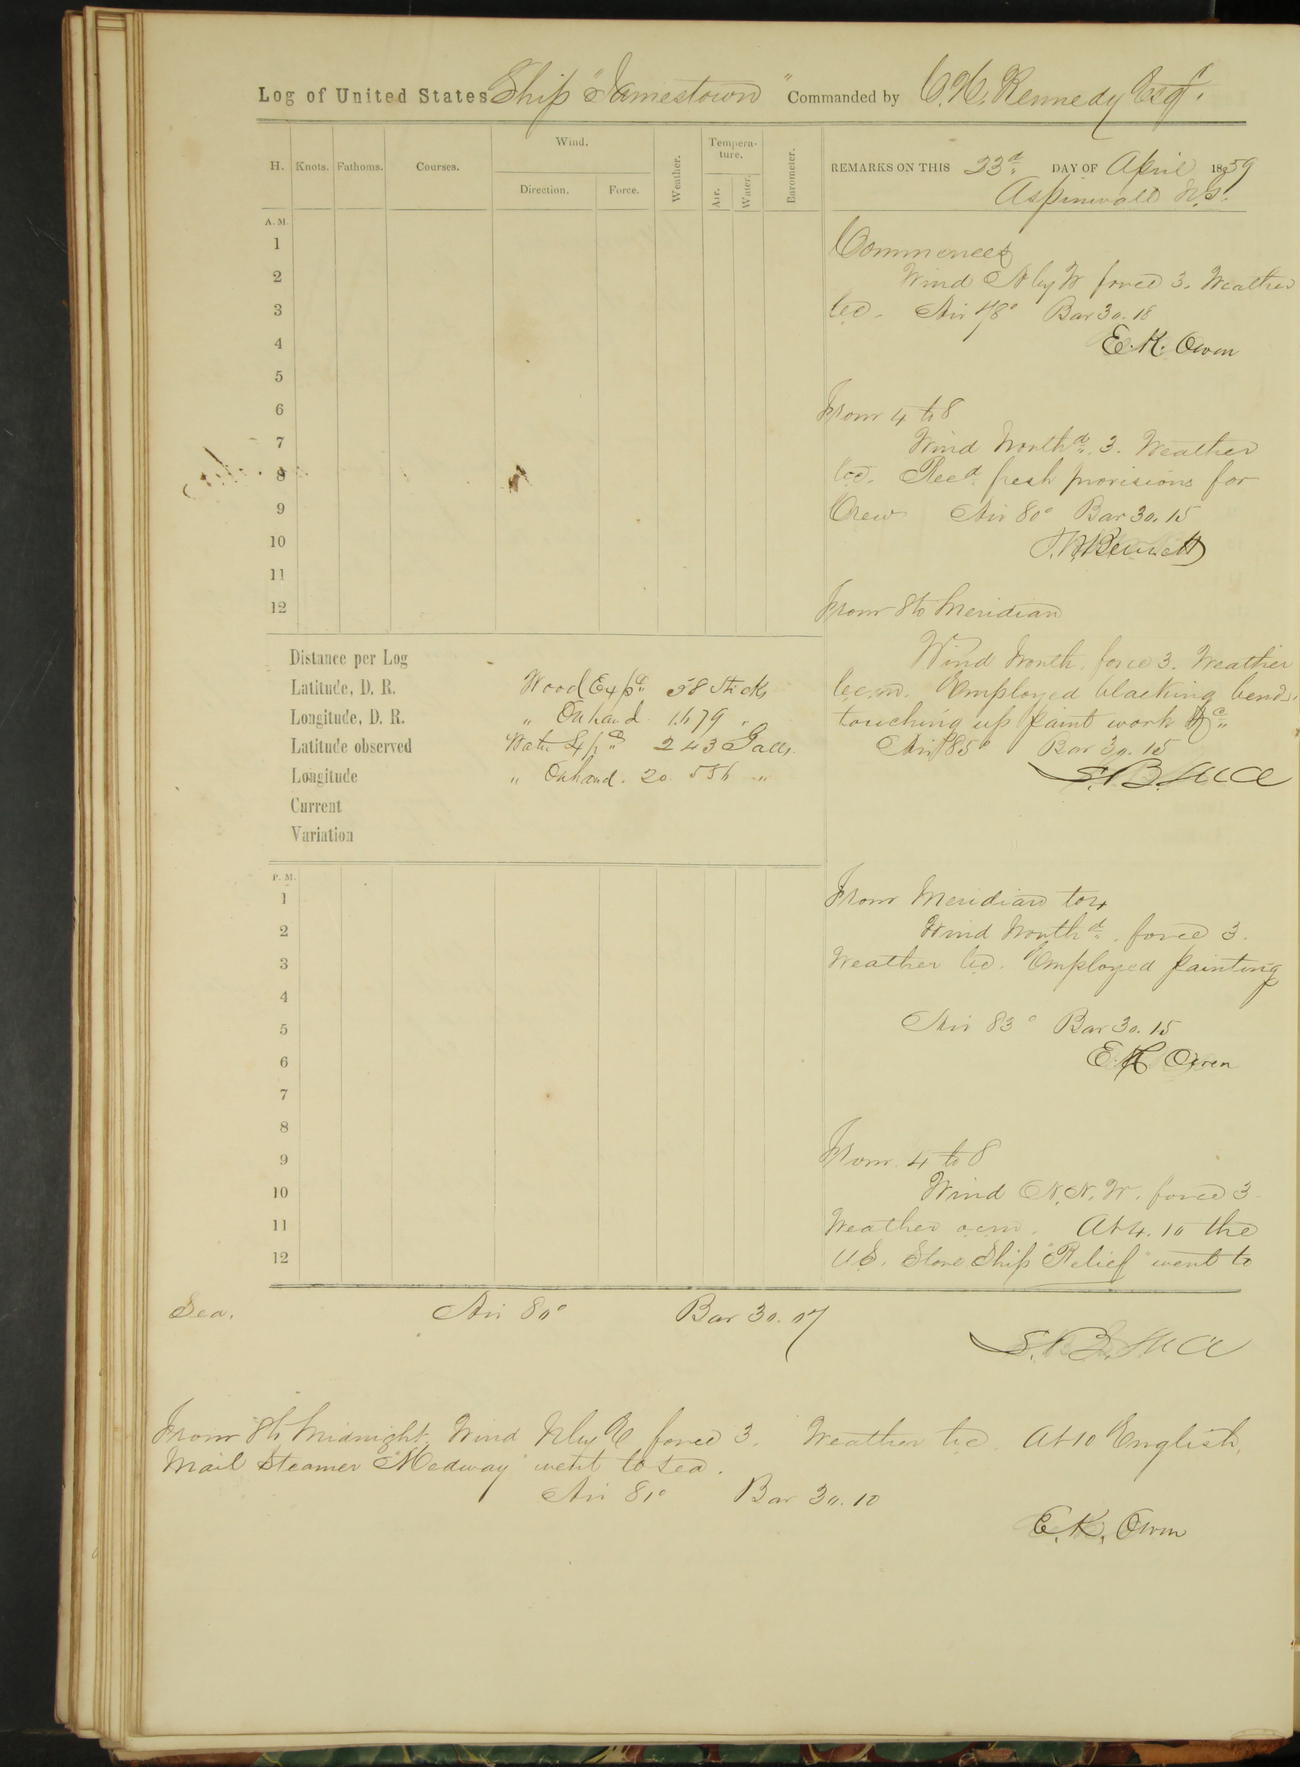 Log of United States Ship "Jamestown" Commanded by C. H. Kennedy Esqr.
H. Knots. Fathoms. Courses. Wind. Direction. Force. Weather. Tempera-ture. Air. Water. Barometer.
REMARKS ON THIS 23d DAY OF April 1859
Aspinwall N.G.
A. M.
1
2
3
4
5
6
7
8
9
10
11
12
Commences
Wind N by W force 3. Weather
b.c. Air 78° Bar 30.18
E. K. Owen
From 4 to 8
Wind Northd. 3. Weather
b.c. Recd. fresh provisions for
Crew Air 80° Bar 30.15
From 8 to Meridian
Wind North. force 3. Weather
b.c.m. Employed blacking bends,
touching up paint work &c
Air 85° Bar 30.15
S. B. Luce
Distance per Log
Latitude, D. R.
Longitude, D. R.
Latitude observed
Longitude
Current
Variation
Wood Expd. 58 Sticks
" On hand 1.679 "
Water Expd. 243 Galls.
" On hand. 20.556 "
P. M.
1
2
3
4
5
6
7
8
9
10
11
12
From Meridian to 4
Wind Northd. force 3.
Weather b.c. Employed painting
Air 83° Bar 30.15
E. K. Owen
From 4 to 8
Wind N.N.W. force 3
Weather o.c.m. At 4.10 the
U.S. Store Ship "Relief" went to
Sea. Air 80° Bar 30.07
S. B. Luce
From 8 to Midnight, Wind N by E force 3. Weather b.c. At 10 English
Mail Steamer "Medway" went to sea.
Air 81° Bar 30.10
E. K. Owen